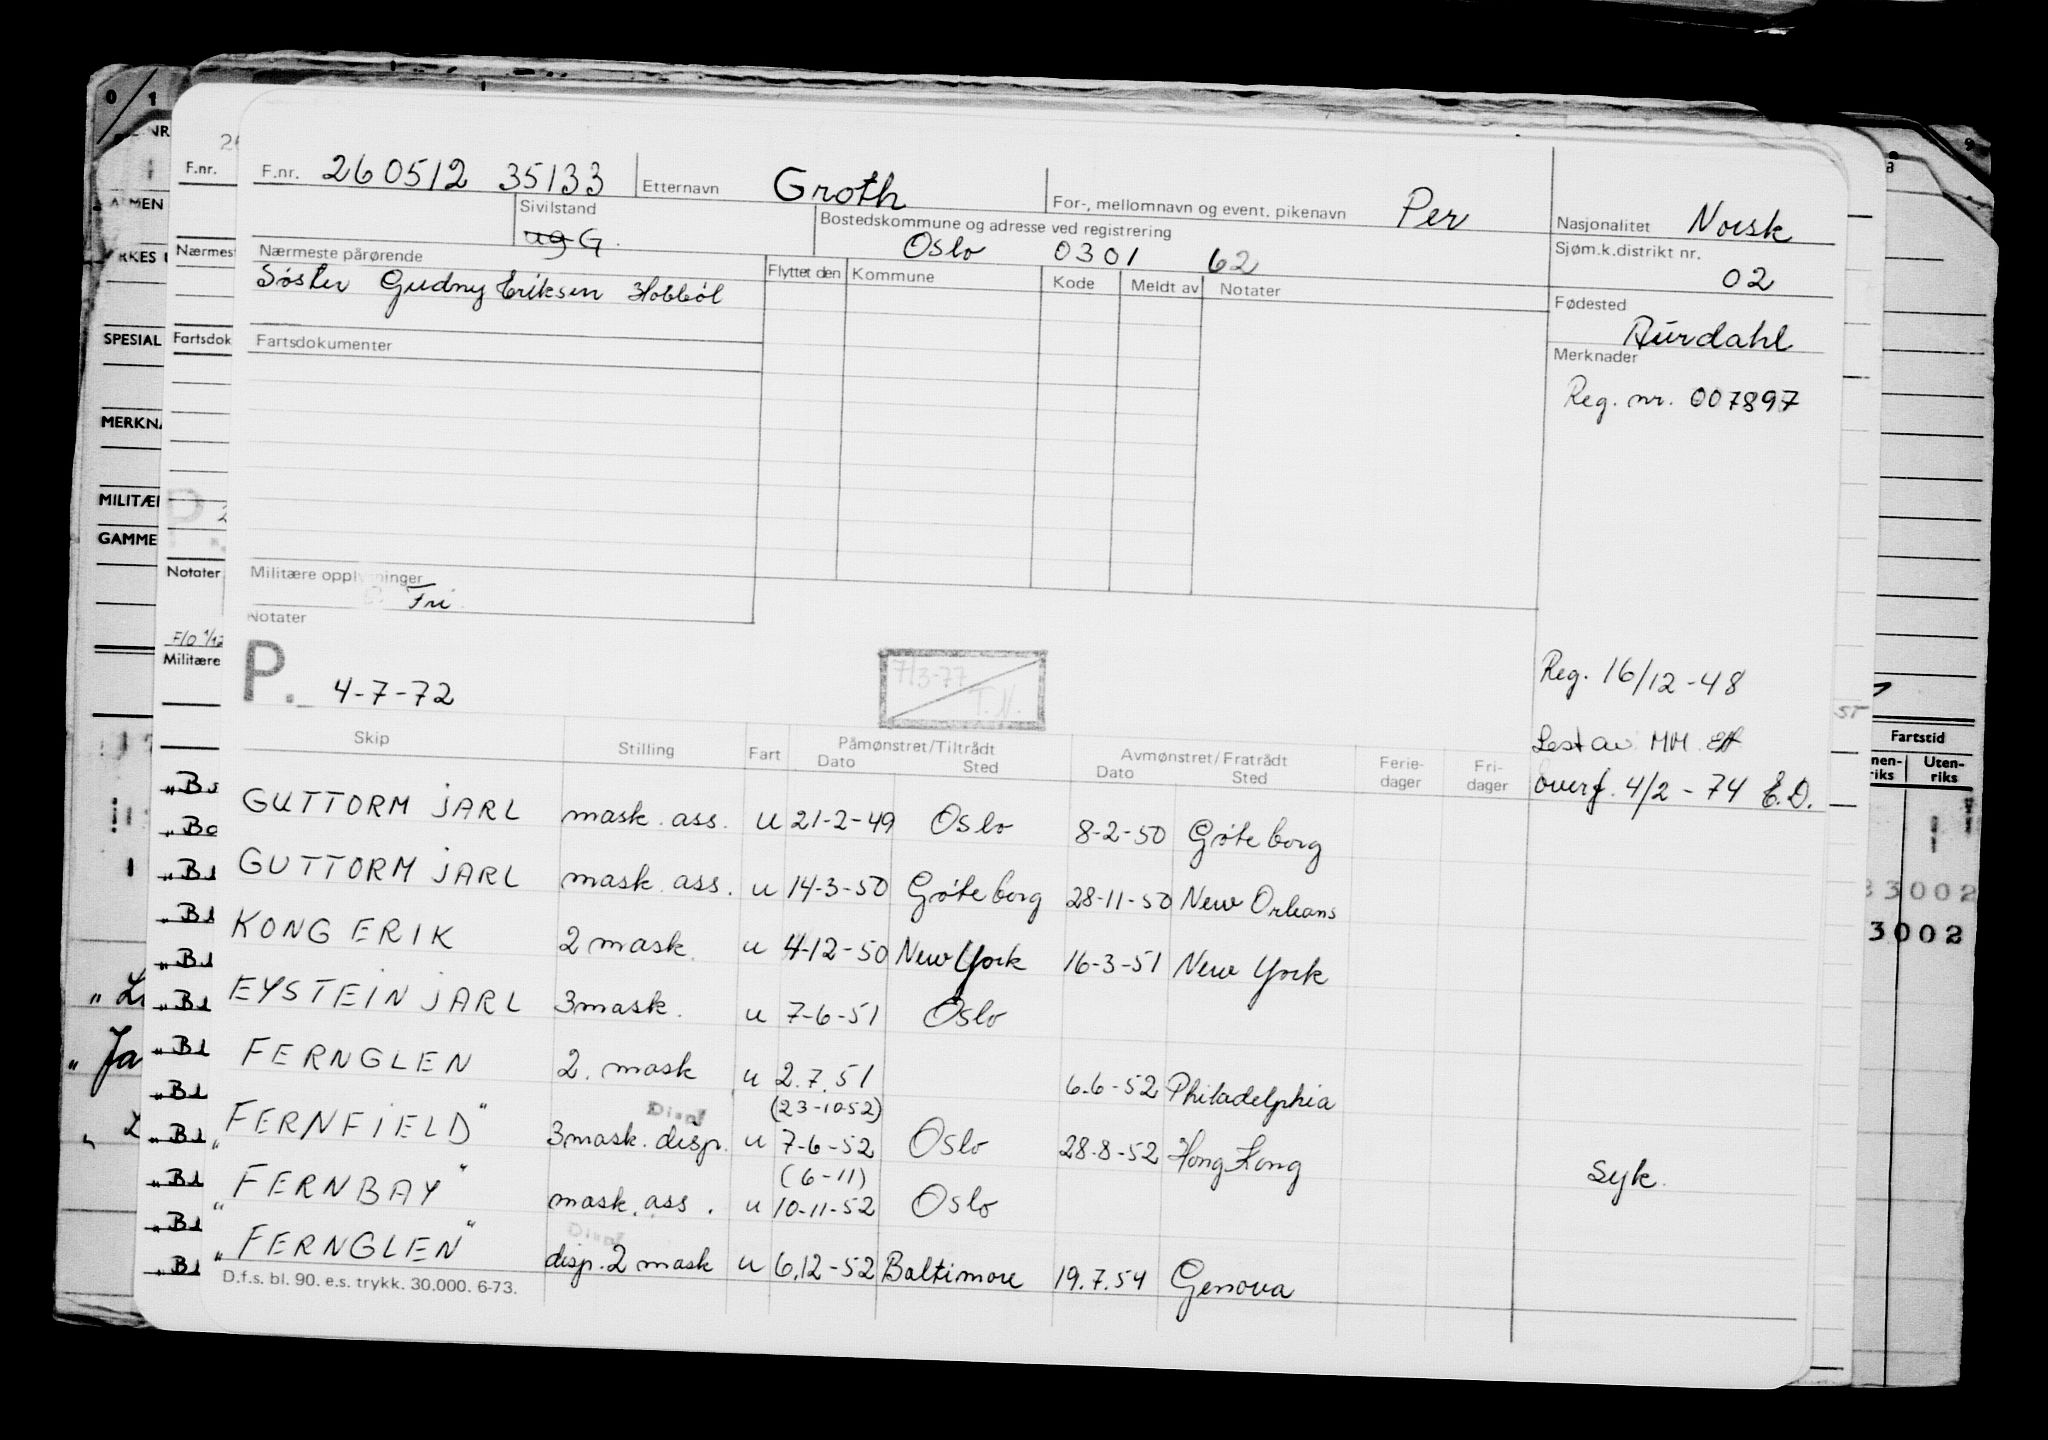 F.nr. 260512 35133 Etternavn Groth For-, mellomnavn og event. pikenavn Per Nasjonalitet Norsk
Sivilstand ug G. Bostedskommune og adresse ved registrering Oslo 0301 62 Sjøm.k.distrikt nr. 02
Nærmeste pårørende Flyttet den Kommune Kode Meldt av Notater Fødested Aurdahl
Søster Gudny Eriksen Hobbøl
Fartsdokumenter Merknader
Reg. nr. 007897
Militære opplysninger
Fri
Notater
P. 4-7-72
7/3-77
T.N.
Reg. 16/12-48
Lest av MM
overf. 4/2-74 E.D.
Skip Stilling Fart Påmønstret/Tiltrådt Avmønstret/Fratrådt Ferie- Fri-
Dato Sted Dato Sted dager dager
GUTTORM JARL mask. ass. u 21-2-49 Oslo 8-2-50 Gøteborg
GUTTORM JARL mask. ass. u 14-3-50 Gøteborg 28-11-50 New Orleans
KONG ERIK 2 mask. u 4-12-50 New York 16-3-51 New York
EYSTEIN JARL 3 mask. u 7-6-51 Oslo
FERNGLEN 2. mask u 2.7.51 6.6-52 Philadelphia
(23-10-52)
FERNFIELD" 3 mask. disp. u 7-6-52 Oslo 28-8-52 Hong Kong
(6-11) syk.
"FERNBAY" mask. ass. u 10-11-52 Oslo
"FERNGLEN" disp. 2 mask u 6.12-52 Baltimore 19.7.54 Genova
D.f.s. bl. 90. e.s. trykk. 30.000. 6-73.
F.nr.
Nærmest
Fartsdok
Notater
Militære
SPESIAL
MERKN
MILITÆR
GAMME
Fartstid
Uten-
riks
3002
3002